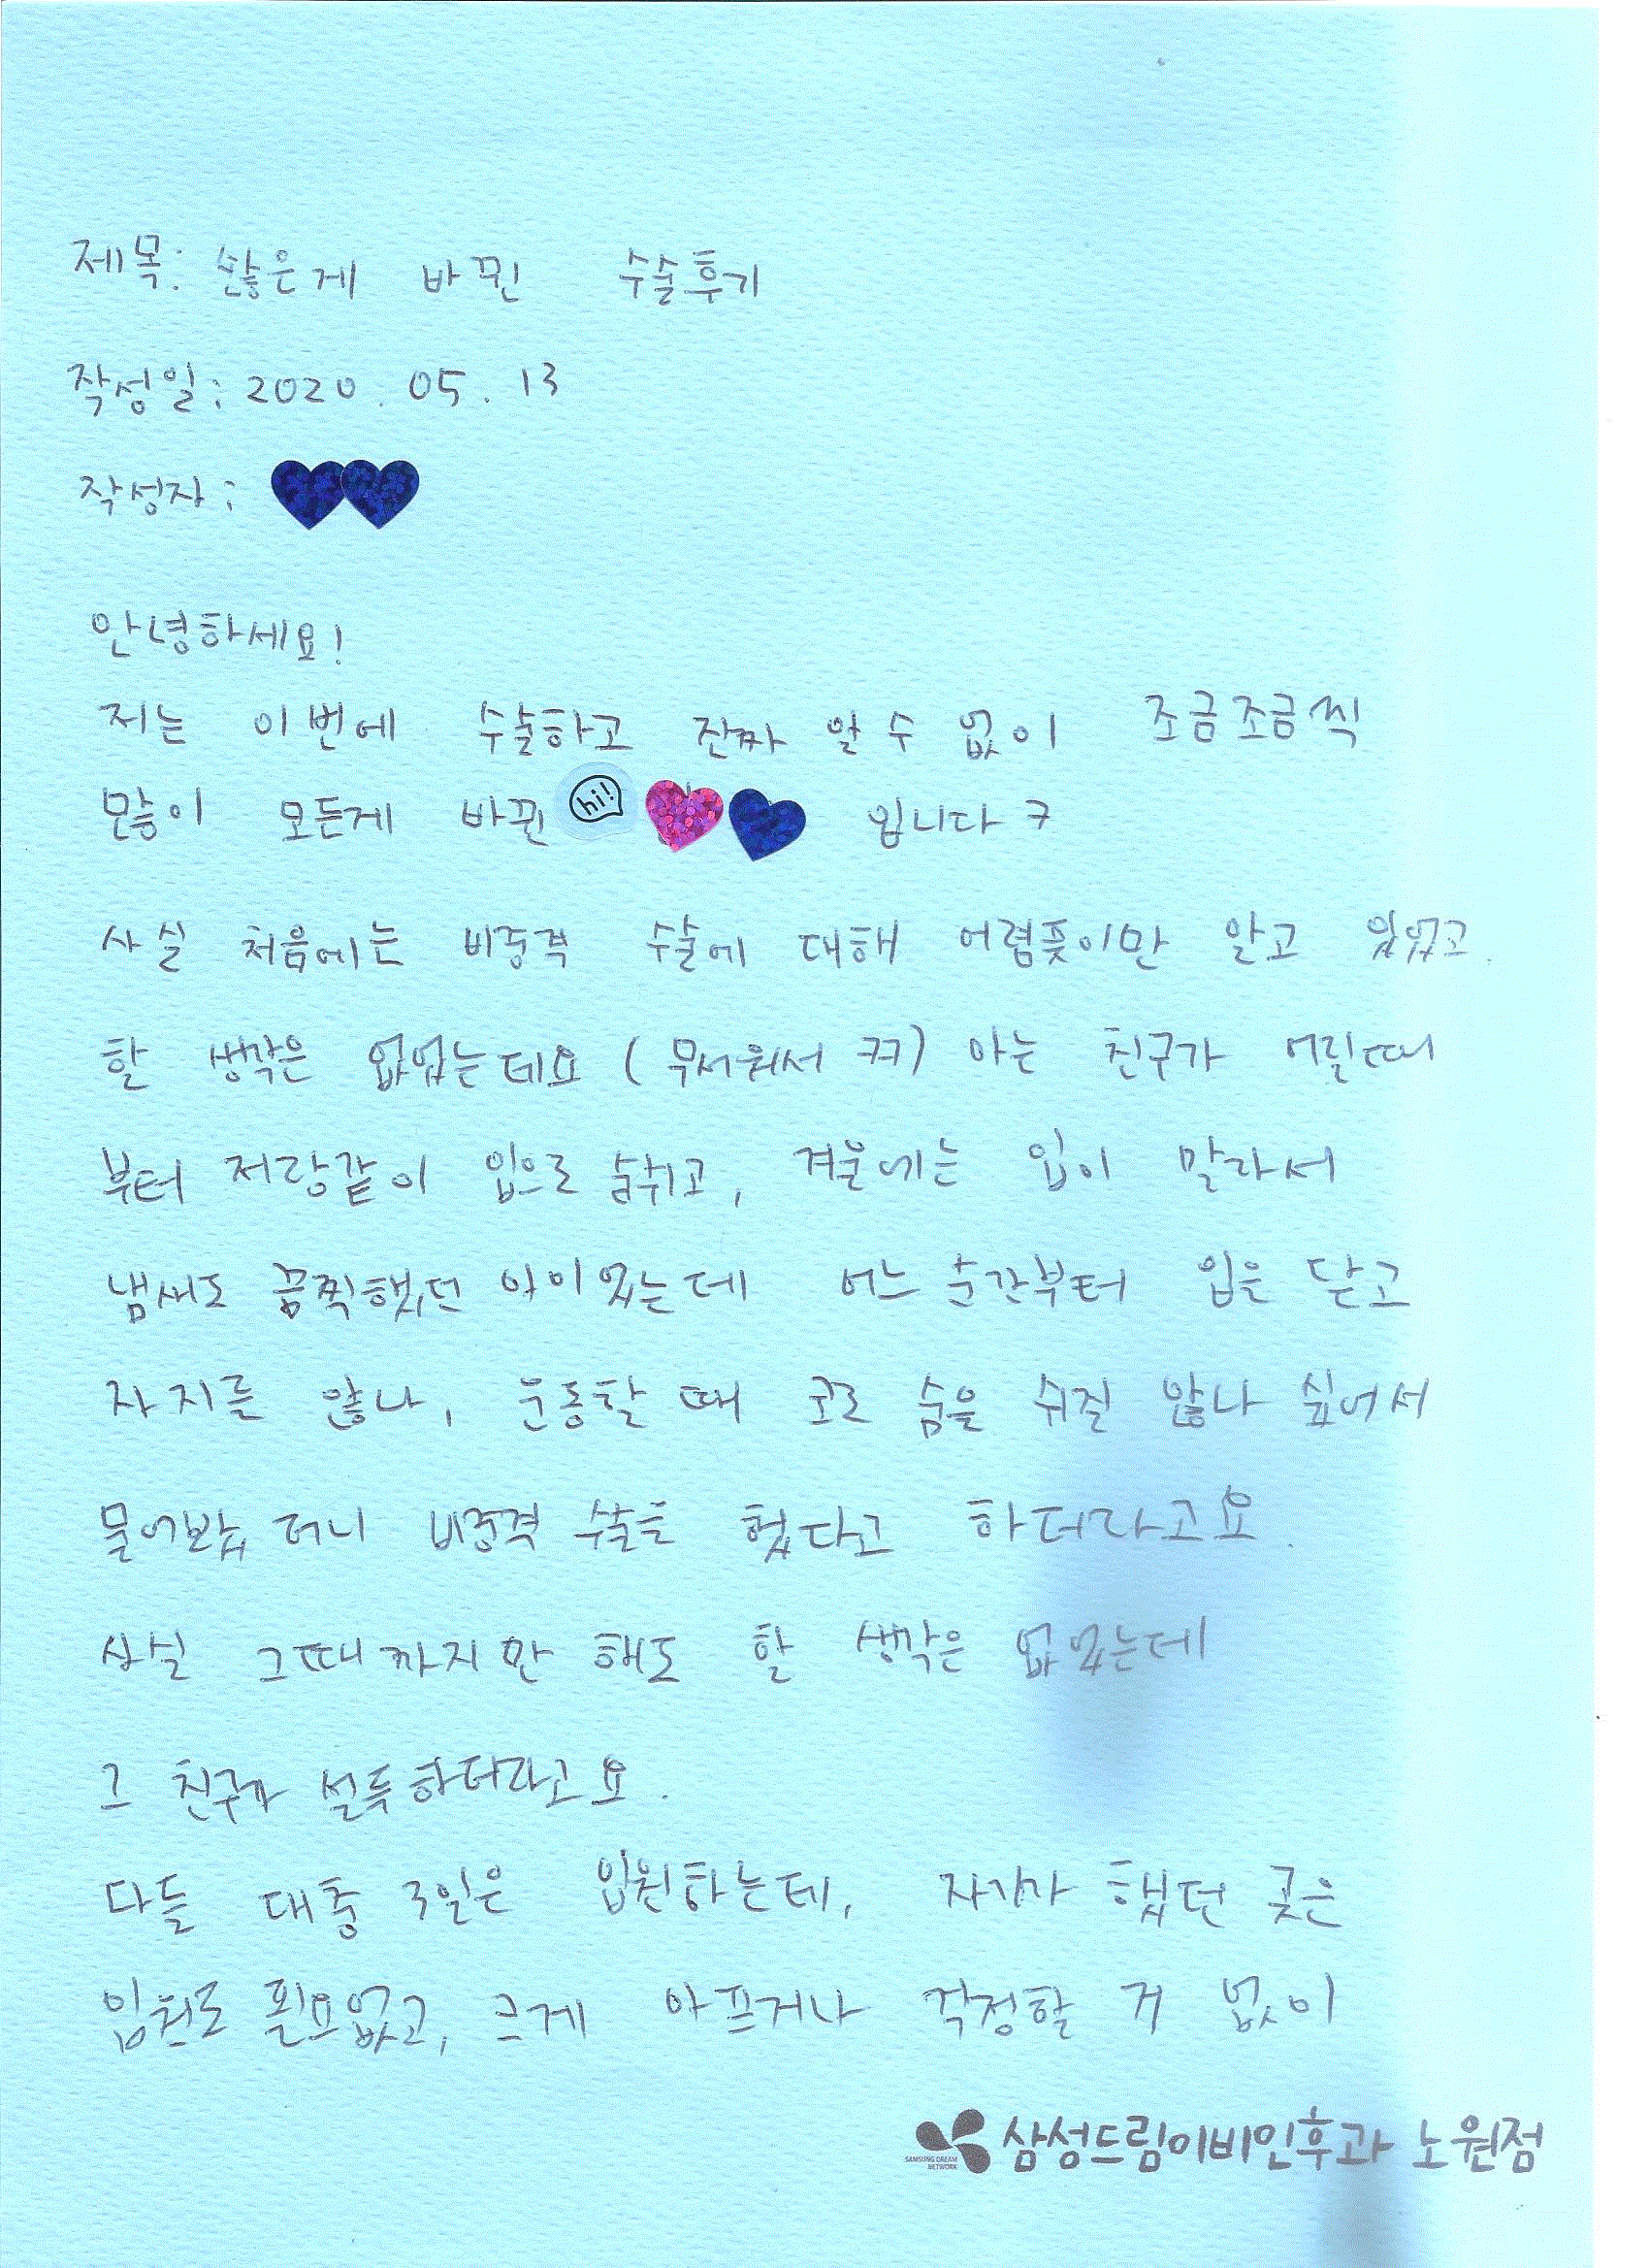 제목: 많은게 바뀐 수술후기
작성일: 2020. 05. 13
작성자:
안녕하세요!
저는 이번에 수술하고 진짜 알 수 없이 조금조금씩
많이 모든게 바뀐 hi! 입니다 ㅋ
사실 처음에는 비중격 수술에 대해 어렴풋이만 알고 있었고.
할 생각은 없었는데요 (무서워서 ㅋㅋ) 아는 친구가 어릴때
부터 저랑같이 입으로 숨쉬고, 겨울에는 입이 말라서
냄새도 끔찍했던 아이였는데 어느 순간부터 입을 닫고
자지를 않나, 운동할 때 코로 숨을 쉬질 않나 싶어서
물어봤더니 비중격 수술을 했다고 하더라고요.
사실 그때까지만 해도 할 생각은 없었는데
그 친구가 설득하더라고요.
다들 대충 3일은 입원하는데, 자기가 했던 곳은
입원도 필요없고, 크게 아프거나 걱정할 거 없이
SAMSUNG DREAM NETWORK 삼성드림이비인후과 노원점